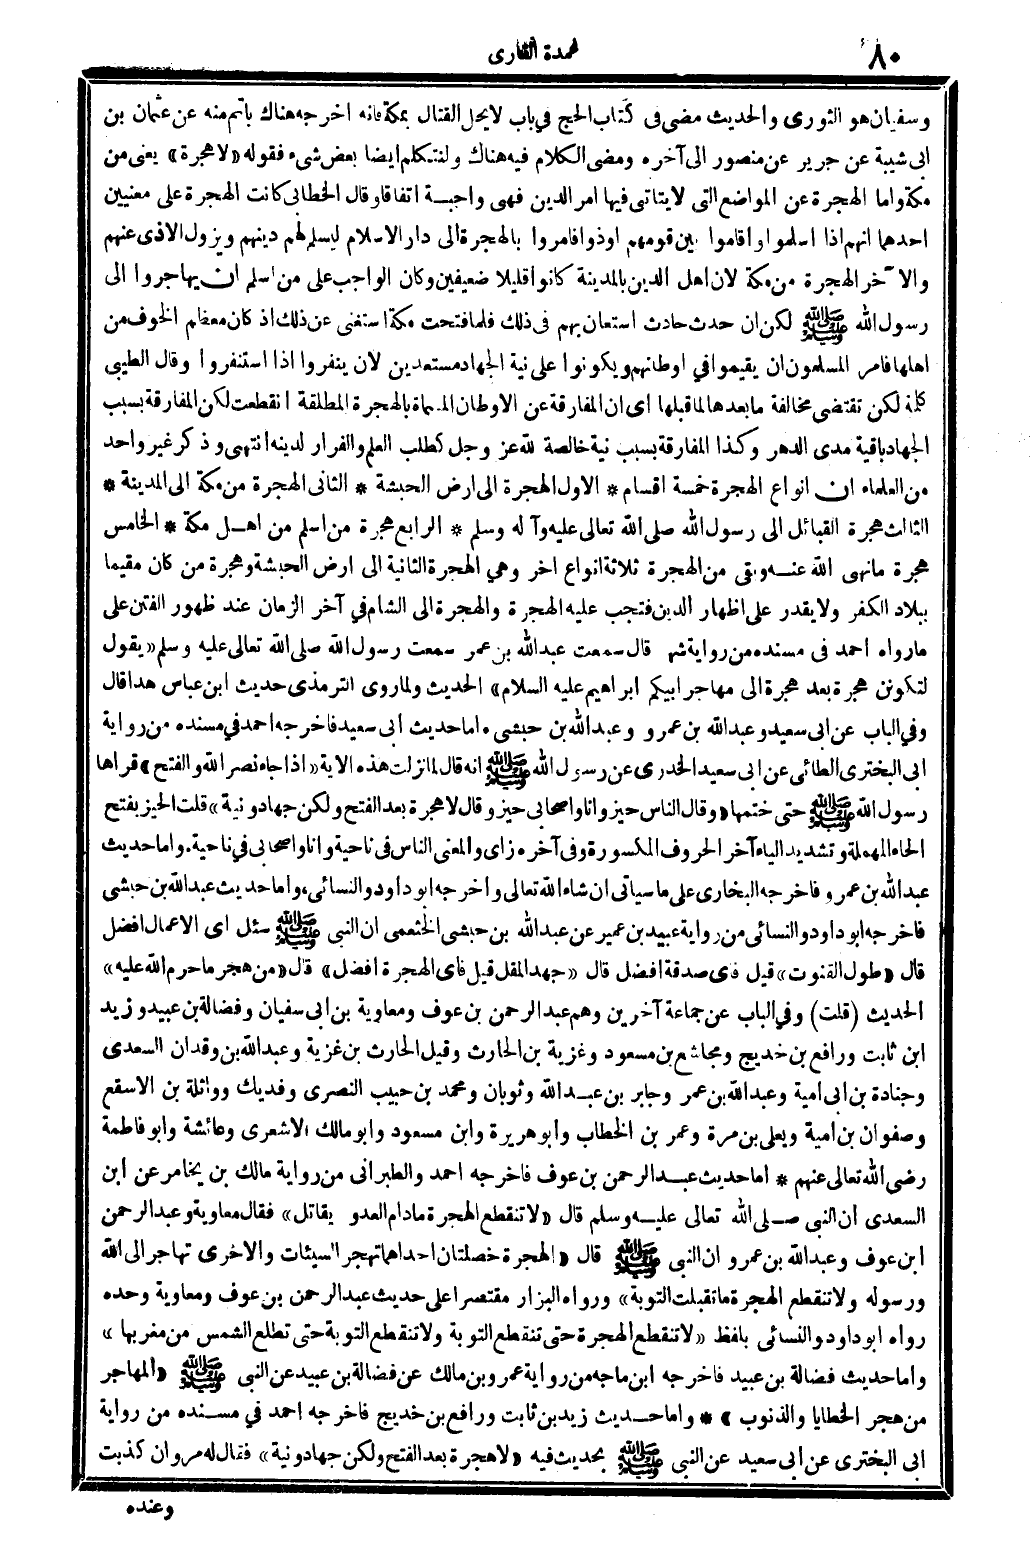 ٨٠
عمدة القارى
وسفيان هو الثورى والحديث مضى فى كتاب الحج في باب لا يحل القتال بمكة فانه اخرجه هناك بأتم منه عن عثمان بن
ابى شيبة عن جرير عن منصور الى آخره ومضى الكلام فيه هناك ولنتكلم ايضا بعض شىء فقوله «لا هجرة» يعنى من
مكة واما الهجرة عن المواضع التى لا يتأتى فيها امر الدين فهى واجبة اتفاقا وقال الخطابى كانت الهجرة على معنيين
احدهما انهم اذا اسلموا واقاموا بين قومهم اوذوا فامروا بالهجرة الى دار الاسلام ليسلم لهم دينهم ويزول الاذى عنهم
والآخر الهجرة من مكة لان اهل الدين بالمدينة كانوا قليلا ضعيفين وكان الواجب على من اسلم ان يهاجروا الى
رسول الله ﷺ لكن ان حدث حادث استعان بهم فى ذلك فلما فتحت مكة استغنى عن ذلك اذ كان معظم الخوف من
اهلها فامر المسلمون ان يقيموا في اوطانهم ويكونوا على نية الجهاد مستعدين لان ينفروا اذا استنفروا وقال الطيبى
كلمة لكن تقتضى مخالفة ما بعدها لما قبلها اى ان المفارقة عن الاوطان المسماة بالهجرة المطلقة انقطعت لكن المفارقة بسبب
الجهاد باقية مدى الدهر وكذا المفارقة بسبب نية خالصة لله عز وجل كطلب العلم والفرار لدينه انتهى وذكر غير واحد
من العلماء ان انواع الهجرة خمسة اقسام * الاول الهجرة الى ارض الحبشة * الثانى الهجرة من مكة الى المدينة *
الثالث هجرة القبائل الى رسول الله صلى الله تعالى عليه وآله وسلم * الرابع هجرة من اسلم من اهل مكة * الخامس
هجرة ما نهى الله عنه وبقى من الهجرة ثلاثة انواع اخر وهي الهجرة الثانية الى ارض الحبشة وهجرة من كان مقيما
ببلاد الكفر ولا يقدر على اظهار الدين فتجب عليه الهجرة والهجرة الى الشام في آخر الزمان عند ظهور الفتن على
ما رواه احمد فى مسنده من رواية شهر قال سمعت عبد الله بن عمر سمعت رسول الله صلى الله تعالى عليه وسلم «يقول
لتكونن هجرة بعد هجرة الى مهاجر ابيكم ابراهيم عليه السلام» الحديث ولما روى الترمذى حديث ابن عباس هذا قال
وفي الباب عن ابى سعيد وعبد الله بن عمرو وعبد الله بن حبشى. اما حديث أبى سعيد فاخرجه احمد في مسنده من رواية
ابى البخترى الطائى عن ابى سعيد الخدرى عن رسول الله ﷺ انه قال لما نزلت هذه الاية «اذا جاء نصر الله والفتح» قراها
رسول الله ﷺ حتى ختمها «وقال الناس حيز وانا واصحابى حيز وقال لا هجرة بعد الفتح ولكن جهاد ونية» قلت الحيز بفتح
الحاء المهملة وتشديد الياء آخر الحروف المكسورة وفى آخره زاى والمعنى الناس فى ناحية وانا واصحابى في ناحية. واما حديث
عبد الله بن عمرو فاخرجه البخارى على ما سياتى ان شاء الله تعالى وأخرجه ابو داود والنسائى، وأما حديث عبد الله بن حبشى
فاخرجه ابو داود والنسائى من رواية عبيد بن عمير عن عبد الله بن حبشى الخثعمى ان النبى ﷺ سئل اى الاعمال افضل
قال «طول القنوت» قيل فاى صدقة افضل قال «جهد المقل قيل فاى الهجرة افضل» قال «من هجر ما حرم الله عليه»
الحديث (قلت) وفي الباب عن جماعة آخرين وهم عبد الرحمن بن عوف ومعاوية بن ابى سفيان وفضالة بن عبيد وزيد
ابن ثابت ورافع بن خديج ومجاشع بن مسعود وغزية بن الحارث وقيل الحارث بن غزية وعبد الله بن وقدان السعدى
وجنادة بن ابى امية وعبد الله بن عمر وجابر بن عبد الله وثوبان ومحمد بن حبيب النصرى وفديك وواثلة بن الاسقع
وصفوان بن أمية ويعلى بن مرة وعمر بن الخطاب وأبو هريرة وابن مسعود وابو مالك الاشعرى وعائشة وابو فاطمة
رضى الله تعالى عنهم * اما حديث عبد الرحمن بن عوف فاخرجه احمد والطبرانى من رواية مالك بن يخامر عن ابن
السعدى ان النبى صلى الله تعالى عليه وسلم قال «لا تنقطع الهجرة ما دام العدو يقاتل» فقال معاوية وعبد الرحمن
ابن عوف وعبد الله بن عمرو ان النبى ﷺ قال «الهجرة خصلتان احداهما تهجر السيئات والاخرى تهاجر الى الله
ورسوله ولا تنقطع الهجرة ما تقبلت التوبة» ورواه البزار مقتصرا على حديث عبد الرحمن بن عوف ومعاوية وحده
رواه ابو داود والنسائى بلفظ «لا تنقطع الهجرة حتى تنقطع التوبة ولا تنقطع التوبة حتى تطلع الشمس من مغربها»
واما حديث فضالة بن عبيد فاخرجه ابن ماجه من رواية عمرو بن مالك عن فضالة بن عبيد عن النبى ﷺ «المهاجر
من هجر الخطايا والذنوب» * واما حديث زيد بن ثابت ورافع بن خديج فاخرجه احمد في مسنده من رواية
ابى البخترى عن أبى سعيد عن النبى ﷺ بحديث فيه «لا هجرة بعد الفتح ولكن جهاد ونية» فقال له مروان كذبت
وعنده